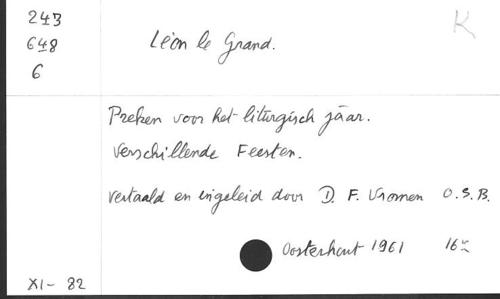 243
648
6
K
Léon le Grand.
Preken voor het liturgisch jaar.
Verschillende Feesten.
vertaald en ingeleid door D. F. Vromen O.S.B.
Oosterhout 1961
XI - 82